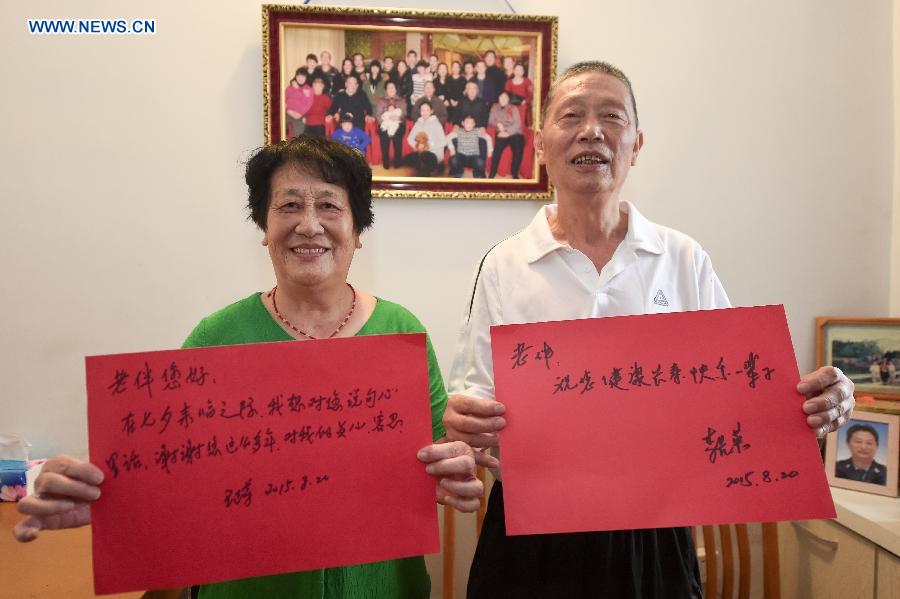 WWW.NEWS.CN
老伴您好，
在七夕来临之际，我想对您说句心
里话，谢谢您这么多年，对我的关心、容忍。
2015.8.20
老伴，
祝您健康长寿快乐一辈子
2015.8.20